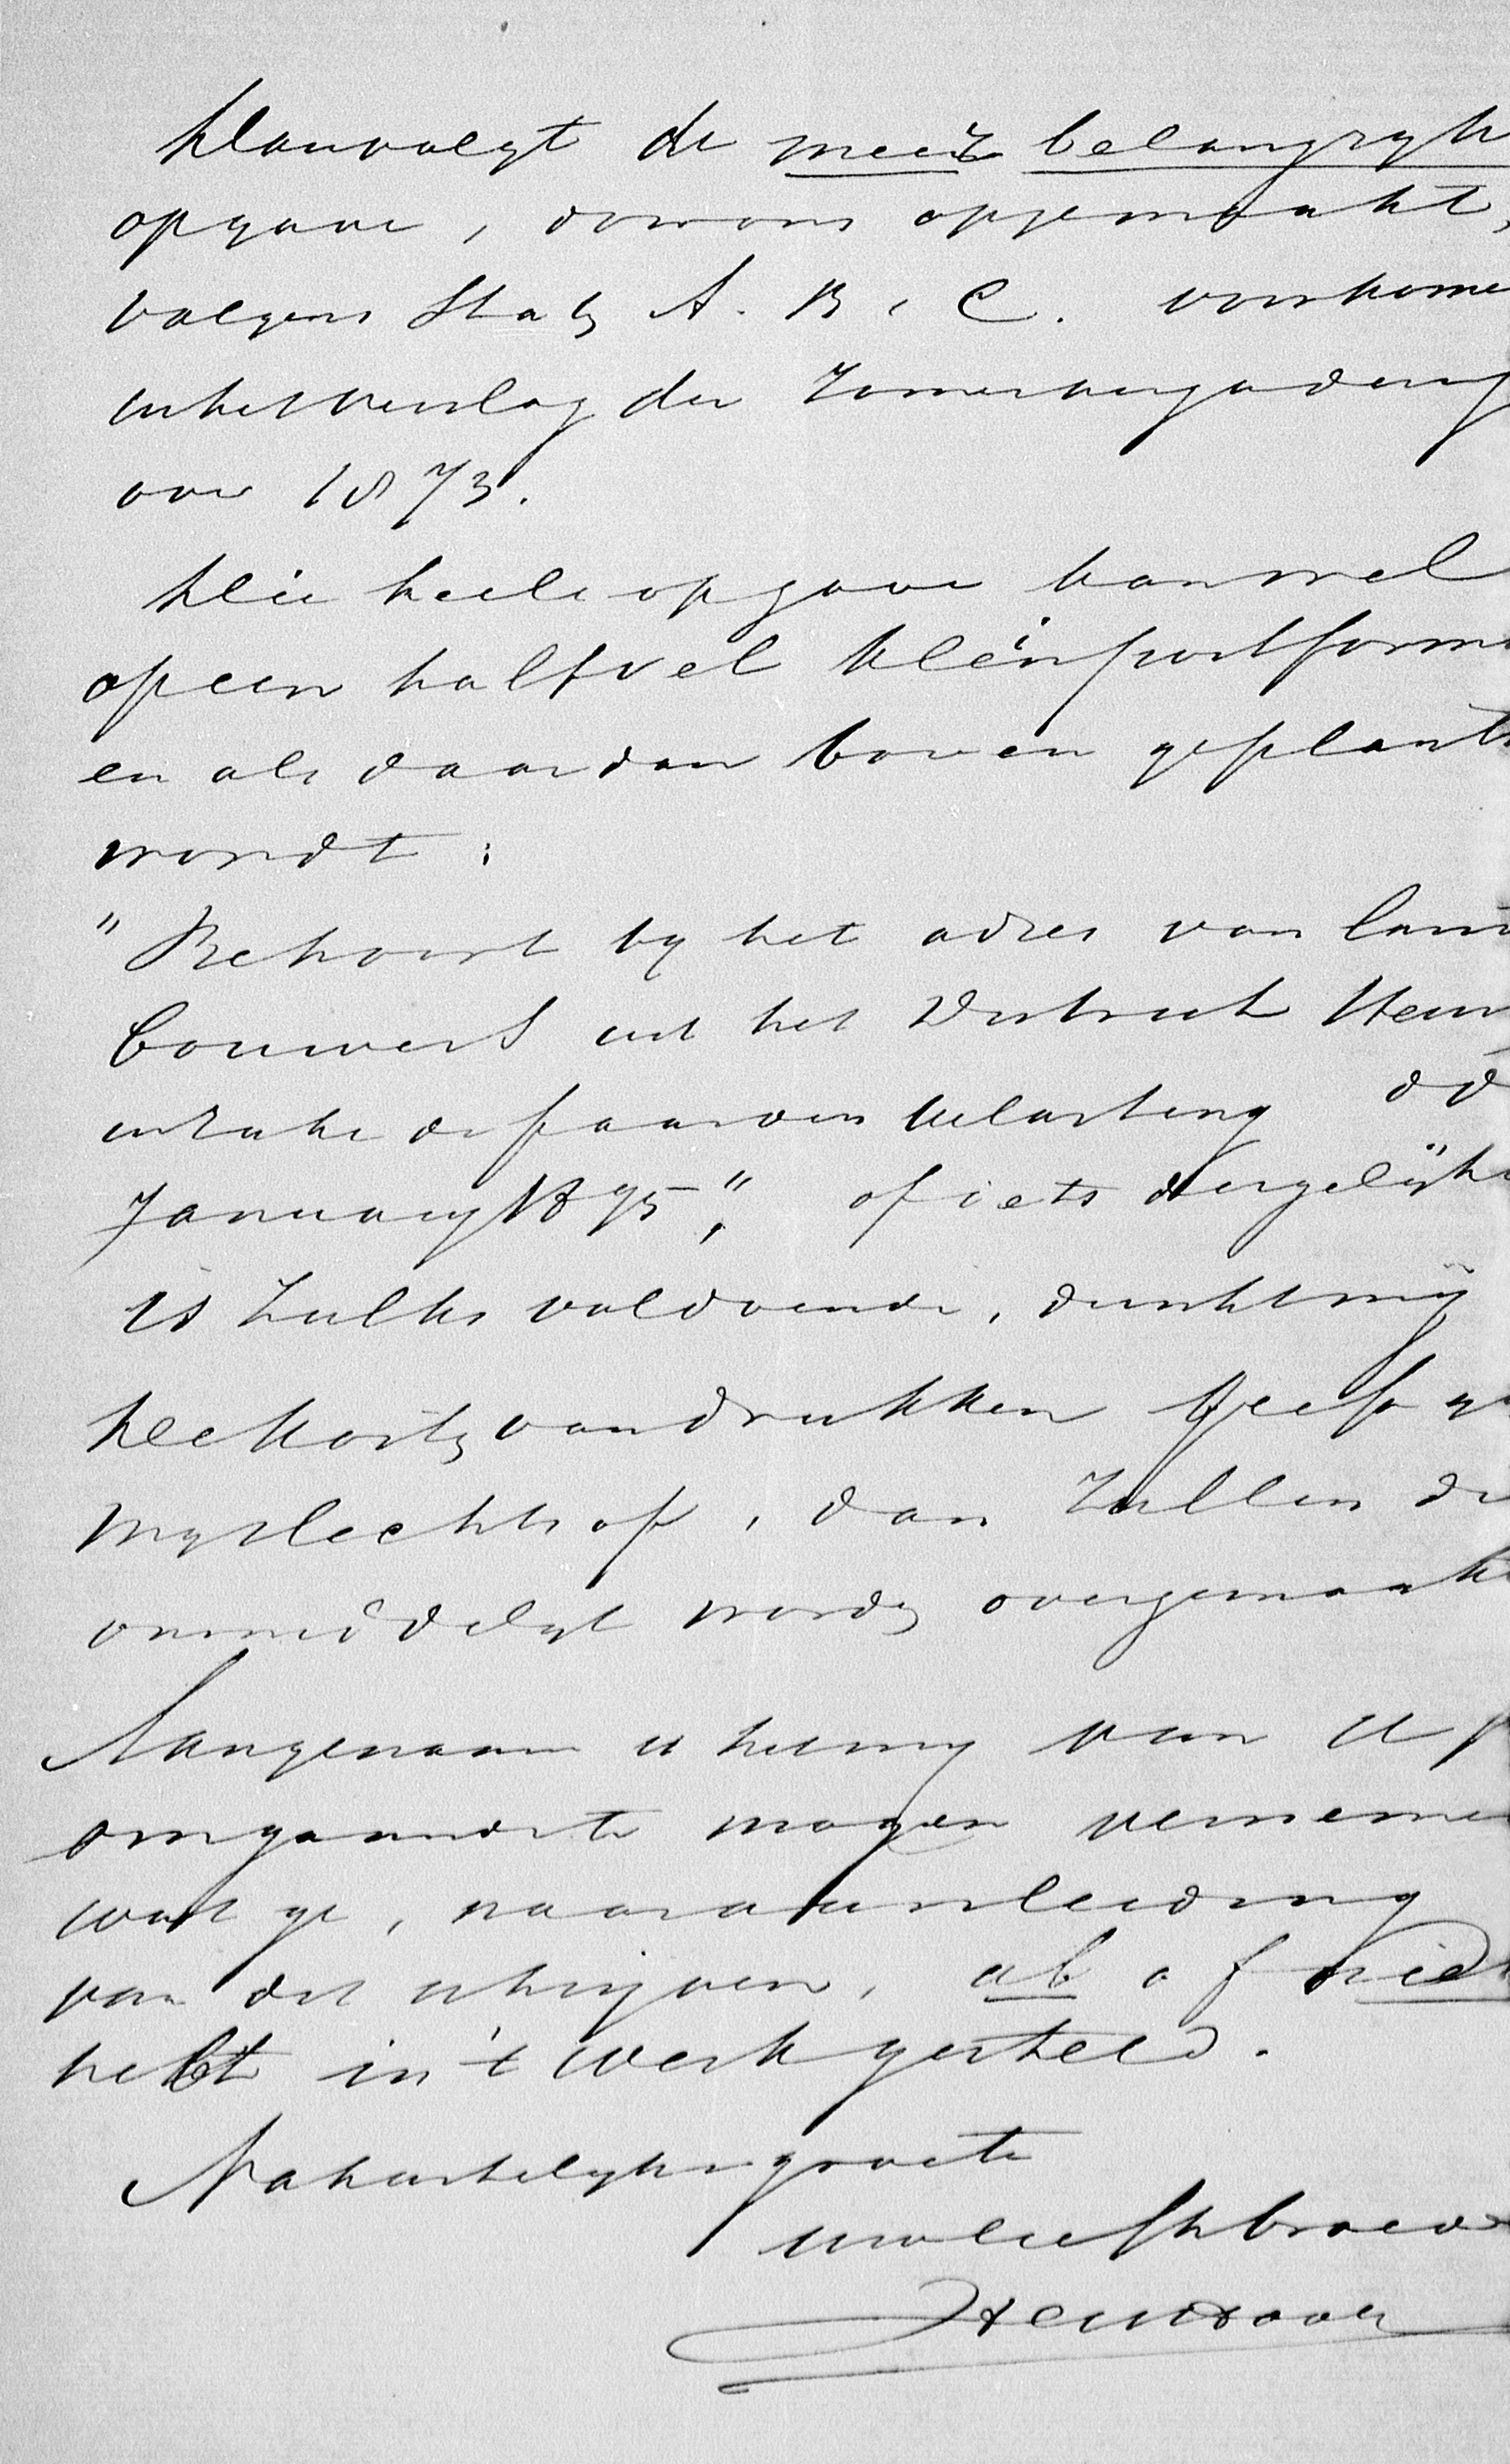 Dan volgt de meest belangrijk
opgave, door ons opgemaakt,
volgens Staten A. B. C. voorkome
in het verslag der Zomervergadering
over 1873.
Die heele opgave kan wel
op een half vel klein postforma
en als daar dan boven geplaats
wordt:
"Behoort bij het adres van land
bouwers uit het District
inzake de paarden belasting dd
January 1895", of iets dergelijks
is zulks voldoende, dunkt mij
De Kosten van drukken geef ge
mij slechts op, dan zullen die
onmiddelijk worden overgemaakt
Aangenaam is het mij van U p
omgaande te mogen verneme
wat ge, naar aanleiding
van dit schrijven, al of niet
hebt in 't werk gesteld.
Na hartelijke groete
uw liefh broeder